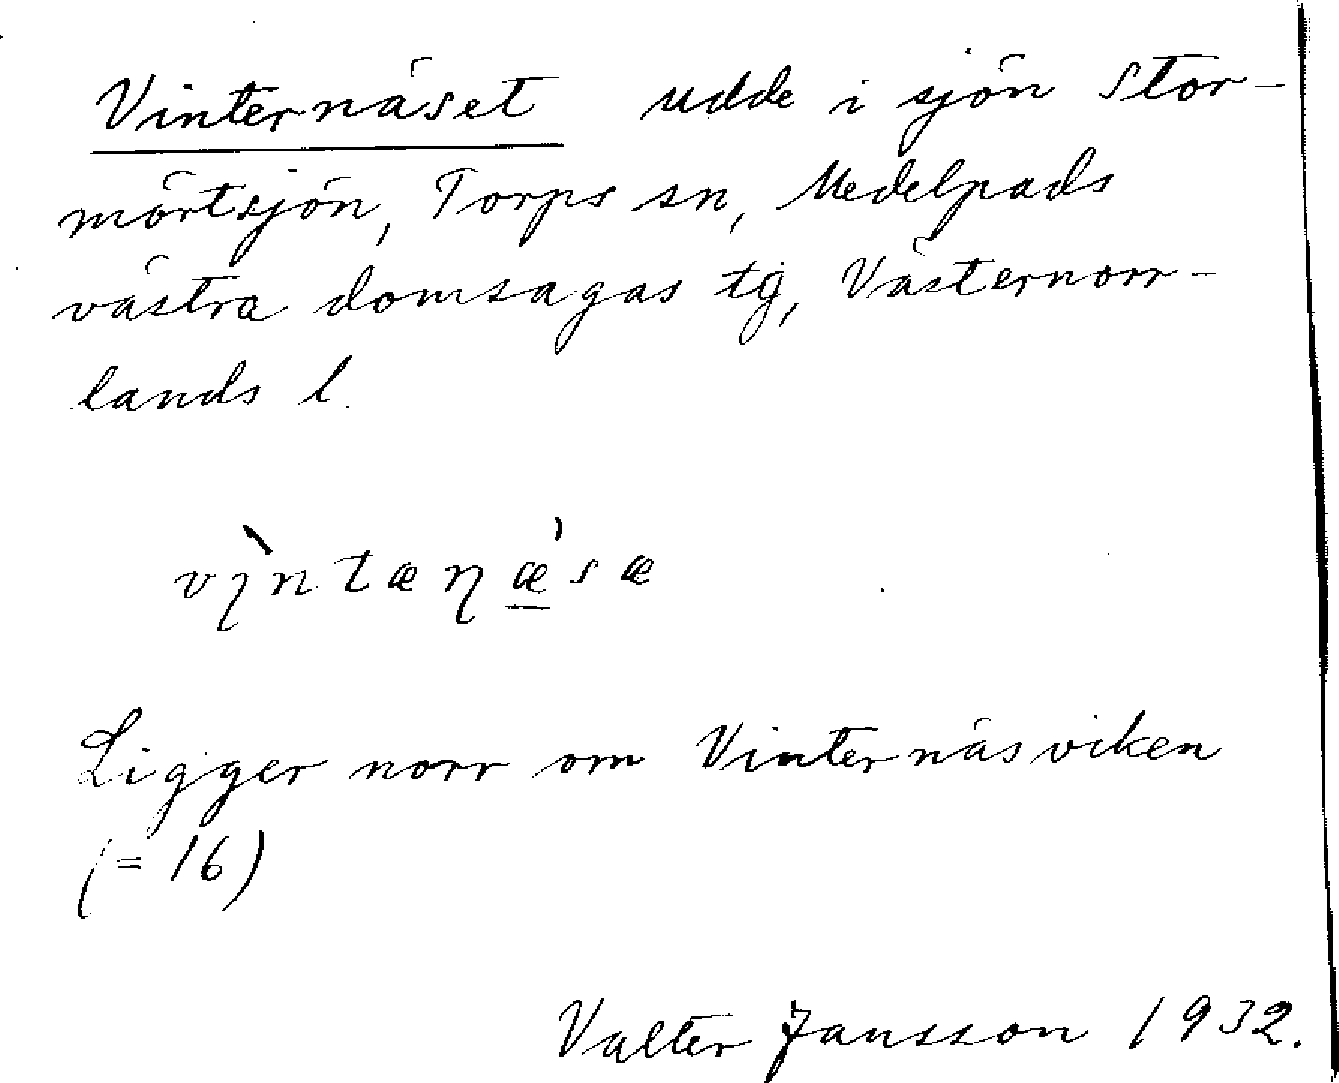 Vinternäset udde i sjön Stor-
mörtsjön, Torps sn, Medelpads
västra domsagas tg, Västernorr-
lands l.
vı̨̀ntæŋǽ̱sæ
Ligger norr om Vinternäsviken
(= 16)
Valter Jansson 1932.